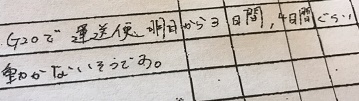 G20で 運送便、昨日から3日間,4日間ぐらい
動かないそうです。